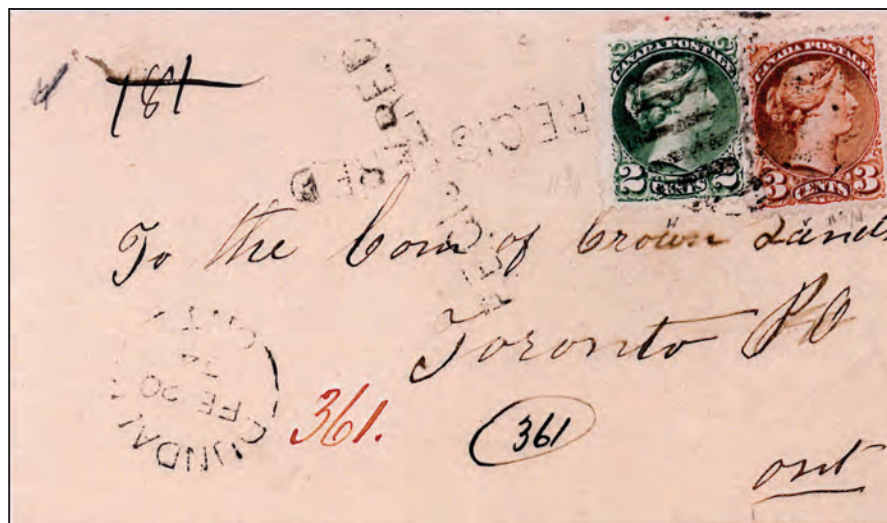 181
REGISTERED
REGISTERED
CANADA POSTAGE
2 CENTS 2
CANADA POSTAGE
3 CENTS 3
To the Com of Crown Lands
Toronto PO
FE 20
361.
361
ont